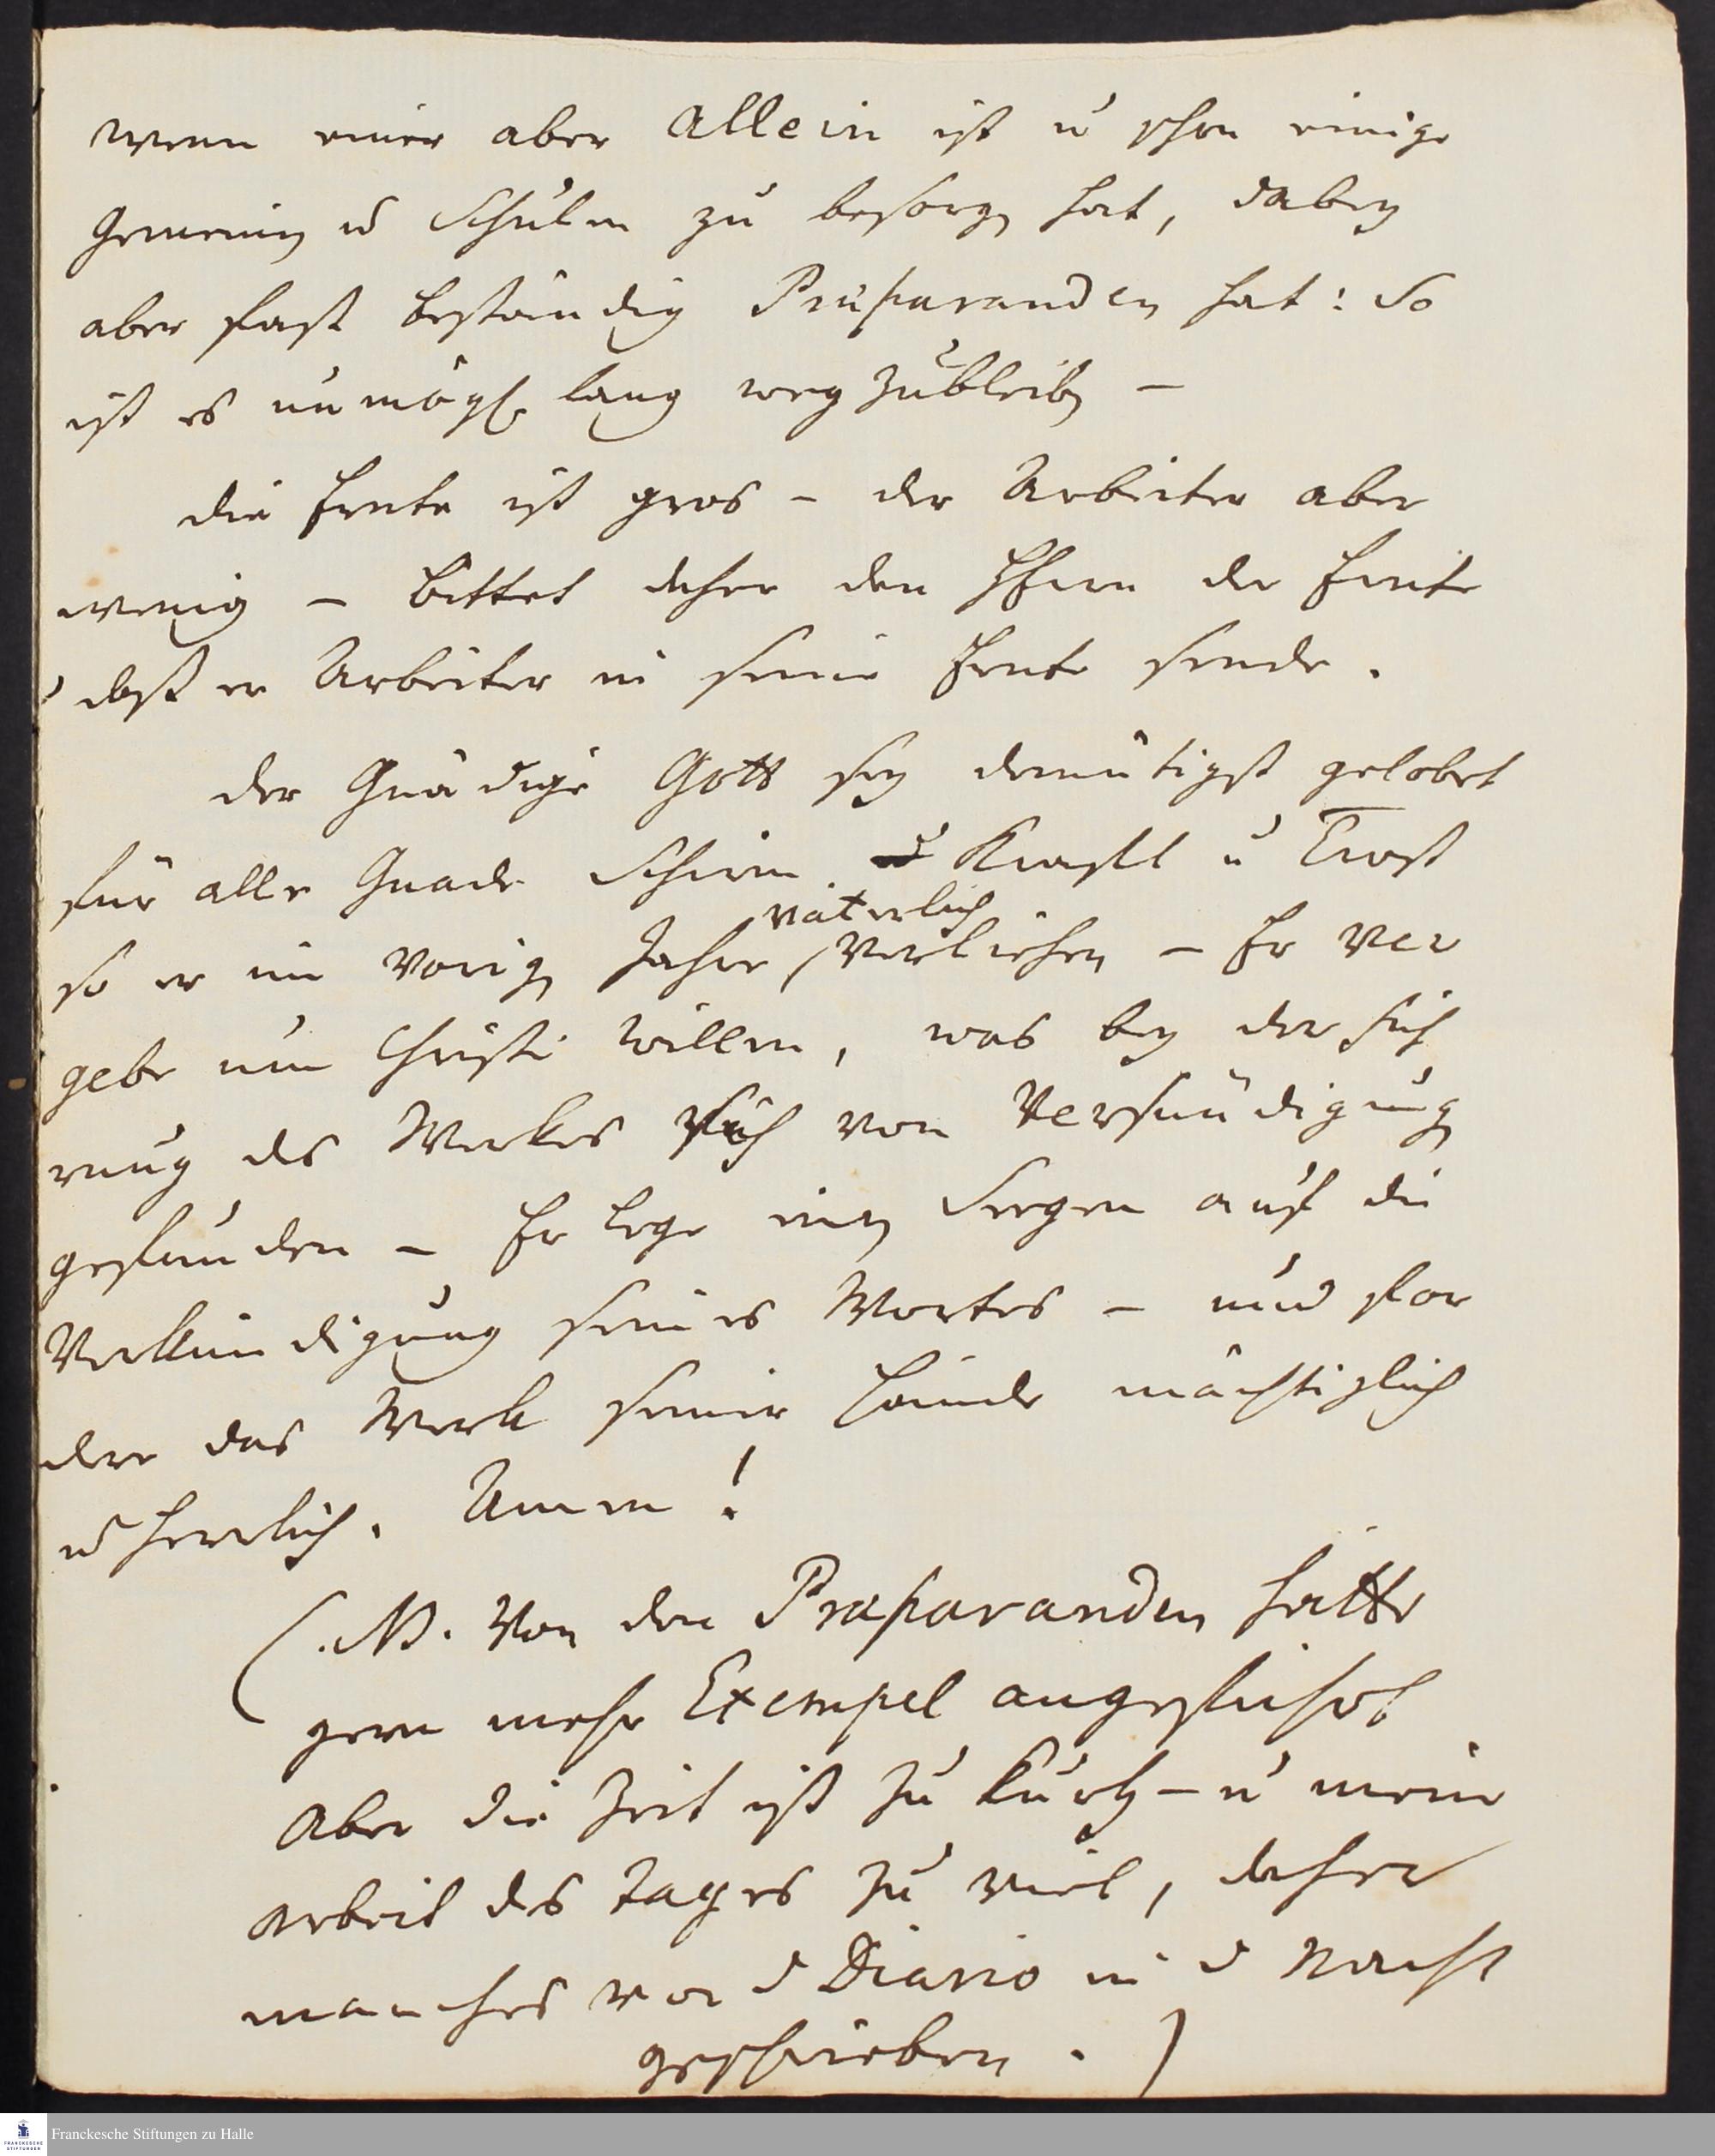 wenn einer aber allein ist u schon einige
Gemeinen u Schulen zu besorgen hat, dabey
aber fast beständig Präparanden hat: So
ist es unmögl. lang wegzubleiben –
die Ernte ist gros – der Arbeiter aber
wenig – bittet daher den HErrn der Ernte
daß er Arbeiter in seine Ernte sende.
der Gnädige Gott sey demütigst gelobet
für alle Gnade Schirm u Krafft u Trost
so er im vorigen Jahre väterlich verliehen – Er ver
gebe um Christi willen, was bey der Füh
rung des Werkes sich von Versündigung
gefunden – Er lege einen Seegen auf die
Verkündigung seines Wortes – und for
dere das Werk seiner Hände mächtiglich
u herrlich. Amen!
(NB. Von den Präparanden hätte
gern mehr Exempel angeführt
Aber die Zeit ist zu kurtz – u meine
Arbeit des Tages zu viel, daher
manches von d Diario in d Nacht
geschrieben.)
Franckesche Stiftungen zu Halle